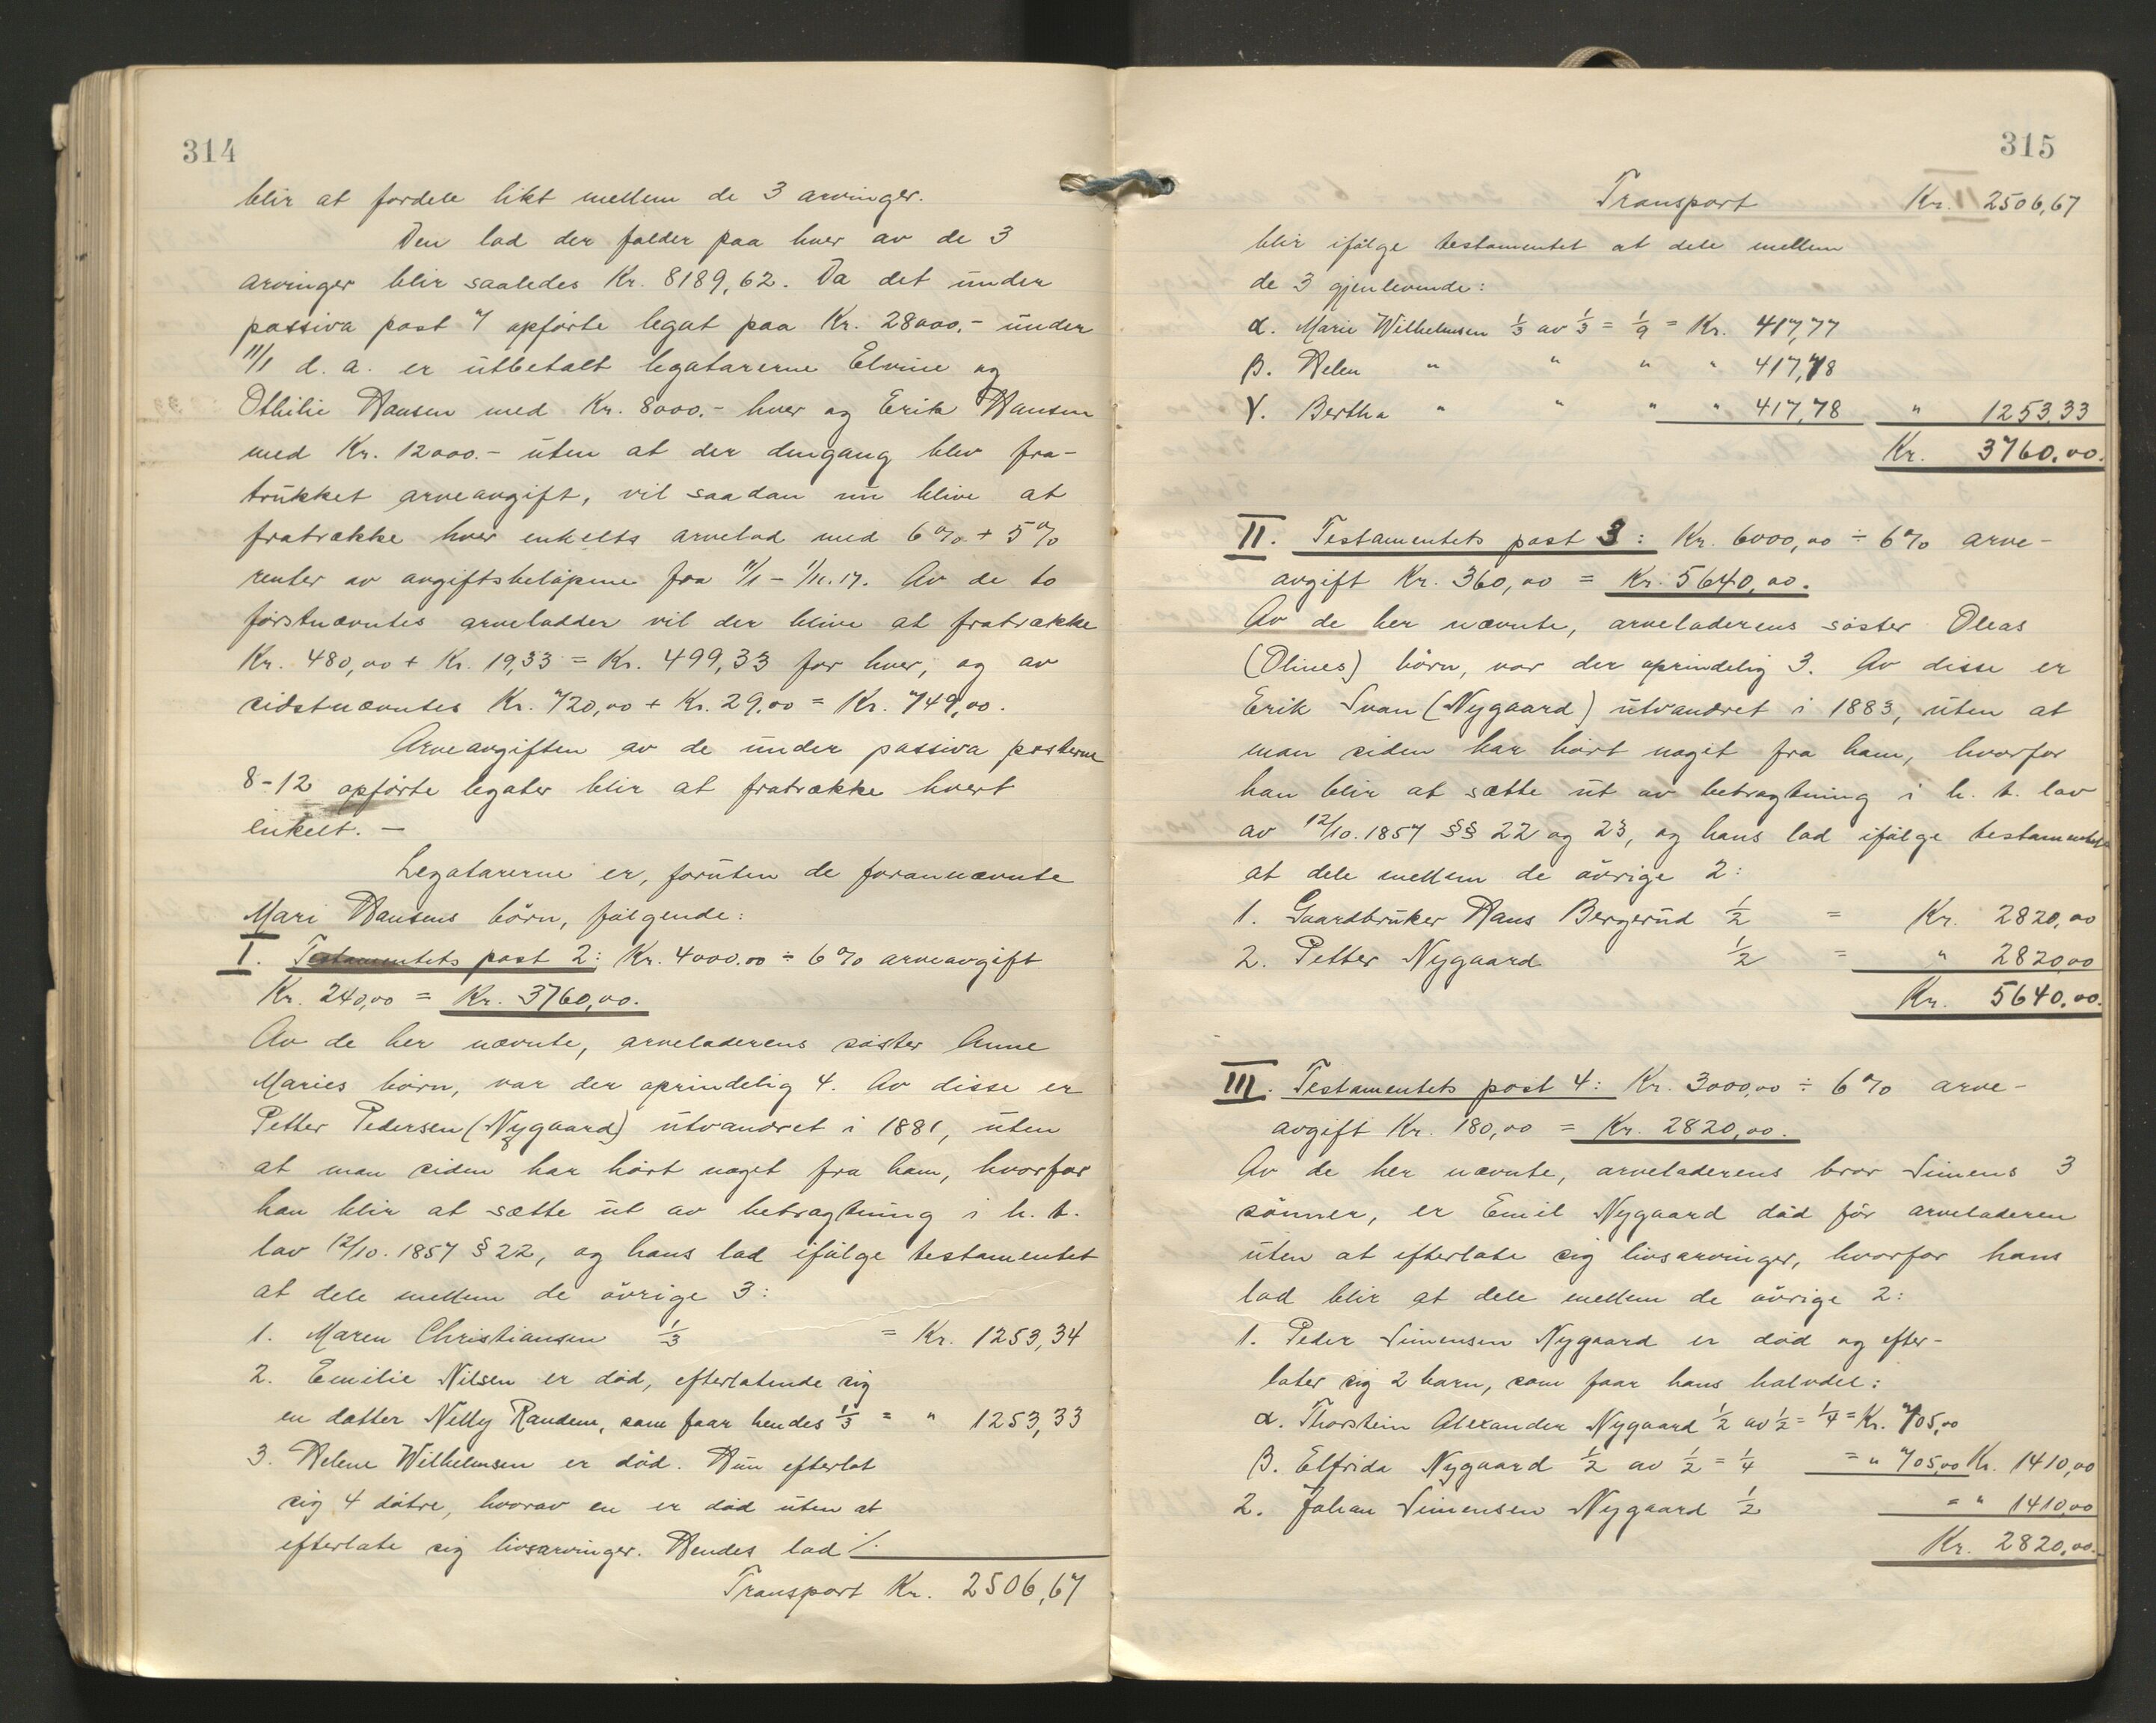 314
blir at fordele likt mellem de 3 arvinger.
Den lod der falder paa hver av de 3
arvinger blir saaledes Kr. 8189,62. Da det under
passiva post 7 opførte legat paa Kr. 28000,- under
11/1 d. a. er utbetalt legatarerne Elvine og
Othilie Hansen med Kr. 8000.- hver og Erik Hansen
med Kr. 12000.- uten at der dengang blev fra-
trukket arveavgift, vil saadan nu blive at
fratrække hver enkelts arvelod med 6% + 5%
renter av avgiftsbeløpene fra 11/1 - 1/11.17. Av de to
førstnævntes arvelodder vil der blive at fratrække
Kr. 480,00 + Kr. 19,33 = Kr. 499,33 for hver, og av
sidstnævntes Kr. 720,00 + Kr. 29,00 = Kr. 749,00.
Arveavgiften av de under passiva posterne
8-12 opførte legater blir at fratrække hvert
enkelt. —
Legatarerne er, foruten de forannævnte
Mari Hansens børn, følgende:
I. Testamentets post 2: Kr. 4000.00 ÷ 6% arveavgift
Kr. 240,00 = Kr. 3760,00.
Av de her nævnte, arveladerens søster Anne
Maries børn, var der oprindelig 4. Av disse er
Petter Pedersen (Nygaard) utvandret i 1881, uten
at man siden har hørt noget fra ham, hvorfor
han blir at sætte ut av betragtning i h. t.
lov 12/10. 1857 § 22, og hans lod ifølge testamentet
at dele mellem de øvrige 3:
1. Maren Christiansen 1/3 = Kr. 1253,34
2. Emilie Nilsen er død, efterlatende sig
en datter Nelly Randem, som faar hendes 1/3 = " 1253,33
3. Helene Wilhelmsen er død. Hun efterlot
sig 4 døtre, hvorav en er død uten at
efterlate sig livsarvinger. Hendes lod ./.
Transport Kr. 2506,67
315
Transport Kr. 2506,67
blir ifølge testamentet at dele mellem
de 3 gjenlevende:
α. Marie Wilhelmsen 1/3 av 1/3 = 1/9 = Kr. 417,77
β. Helen " " " " 417,78
γ. Bertha " " " " 417,78 " 1253,33
Kr. 3760.00.
II. Testamentets post 3: Kr. 6000,00 ÷ 6% arve-
avgift Kr. 360,00 = Kr. 5640,00.
Av de her nævnte, arveladerens søster Oleas
(Olines) børn, var der oprindelig 3. Av disse er
Erik Svan (Nygaard) utvandret i 1883, uten at
man siden har hørt noget fra ham, hvorfor
han blir at sætte ut av betragtning i h. t. lov
av 12/10. 1857 §§ 22 og 23, og hans lod ifølge testamentet
at dele mellem de øvrige 2:
1. Gaardbruker Hans Bergerud 1/2 = Kr. 2820,00
2. Petter Nygaard 1/2 = " 2820,00
Kr. 5640.00.
III. Testamentets post 4: Kr. 3000,00 ÷ 6% arve-
avgift Kr. 180,00 = Kr. 2820,00.
Av de her nævnte, arveladerens bror Simens 3
sønner, er Emil Nygaard død før arveladeren
uten at efterlate sig livsarvinger, hvorfor hans
lod blir at dele mellem de øvrige 2:
1. Peder Simensen Nygaard er død og efter-
later sig 2 barn, som faar hans halvdel:
α. Thorstein Alexander Nygaard 1/2 av 1/2 = 1/4 = Kr. 705,00
β. Elfrida Nygaard 1/2 av 1/2 = 1/4 = " 705,00 Kr. 1410,00
2. Johan Simensen Nygaard 1/2 = " 1410,00
Kr. 2820,00.